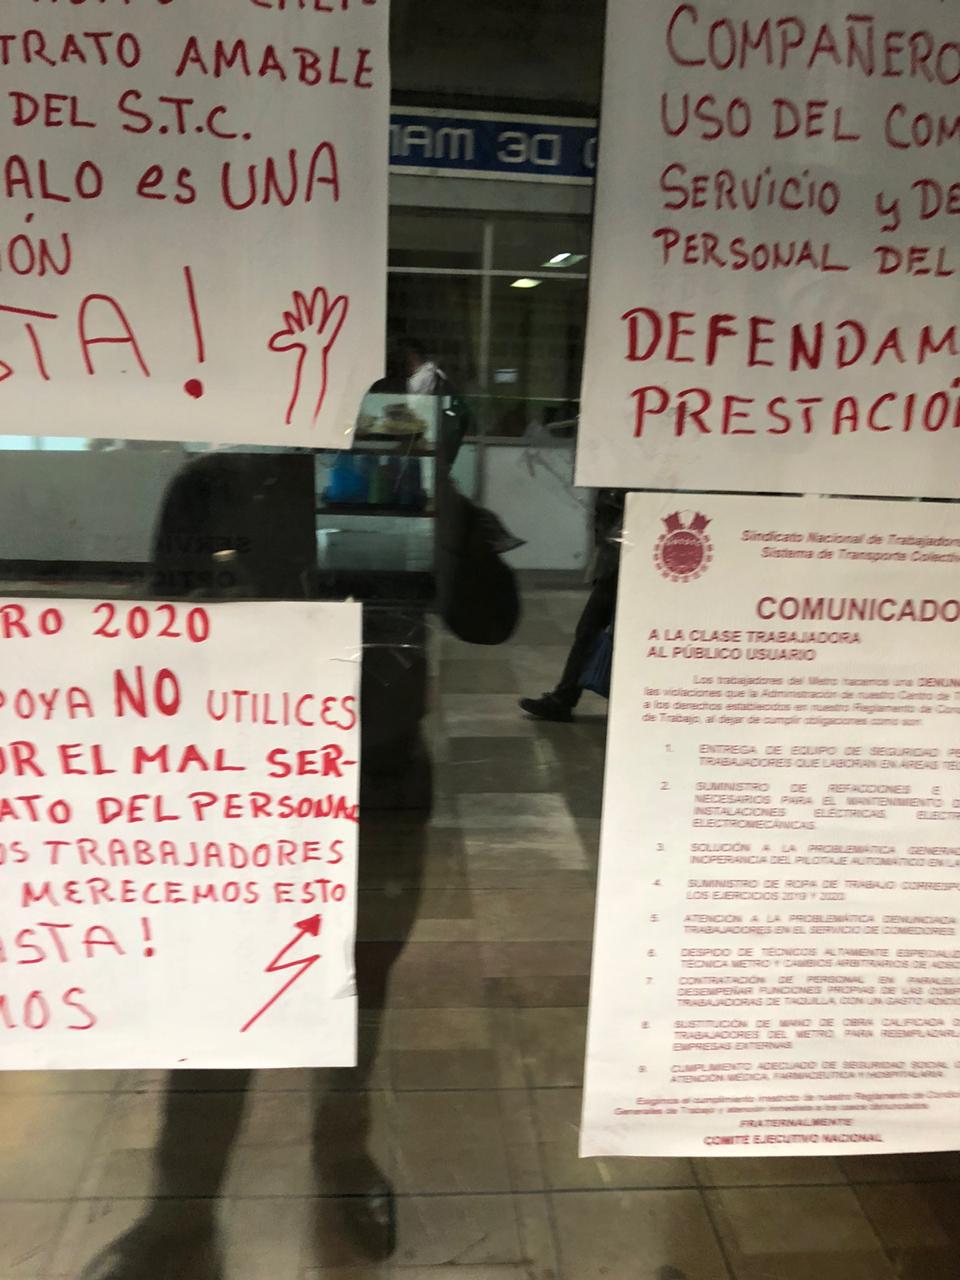 TRATO AMABLE
DEL S.T.C.
ALO es UNA
IÓN
STA!
DE MAR
COMPAÑERO
USO DEL COM
SERVICIO y DE
PERSONAL DEL
DEFENDAM
PRESTACIÓN
RO 2020
POYA NO UTILICES
OR EL MAL SER-
ATO DEL PERSONAL
OS TRABAJADORES
MERECEMOS ESTO
ASTA!
MOS
Sindicato Nacional de Trabajadores
Sistema de Transporte Colectivo
COMUNICADO
A LA CLASE TRABAJADORA
AL PÚBLICO USUARIO
Los trabajadores del Metro hacemos una DENUN
las violaciones que la Administración de nuestro Centro de T
a los derechos establecidos en nuestro Reglamento de Con
de Trabajo, al dejar de cumplir obligaciones como son:
1. ENTREGA DE EQUIPO DE SEGURIDAD PE
TRABAJADORES QUE LABORAN EN ÁREAS TÉC
2. SUMINISTRO DE REFACCIONES E
NECESARIOS PARA EL MANTENIMIENTO D
INSTALACIONES ELÉCTRICAS, ELECTR
ELECTROMECÁNICAS.
3. SOLUCIÓN A LA PROBLEMÁTICA GENERA
INOPERANCIA DEL PILOTAJE AUTOMÁTICO EN LA
4. SUMINISTRO DE ROPA DE TRABAJO CORRESPO
LOS EJERCICIOS 2019 Y 2020.
5. ATENCIÓN A LA PROBLEMÁTICA DENUNCIADA
TRABAJADORES EN EL SERVICIO DE COMEDORES.
6. DESPIDO DE TÉCNICOS ALTAMENTE ESPECIALI
TÉCNICA METRO Y CAMBIOS ARBITRARIOS DE ADSC
7. CONTRATACIÓN DE PERSONAL EN PARALE
DESEMPEÑAR FUNCIONES PROPIAS DE LAS COM
TRABAJADORAS DE TAQUILLA, CON UN GASTO ADICI
8. SUSTITUCIÓN DE MANO DE OBRA CALIFICADA D
TRABAJADORES DEL METRO, PARA REEMPLAZARL
EMPRESAS EXTERNAS.
9. CUMPLIMIENTO ADECUADO DE SEGURIDAD SOCIAL
ATENCIÓN MÉDICA, FARMACÉUTICA Y HOSPITALARIA.
Exigimos el cumplimiento irrestricto de nuestro Reglamento de Condic
Generales de Trabajo y atención inmediata a los casos denunciados.
FRATERNALMENTE
COMITÉ EJECUTIVO NACIONAL